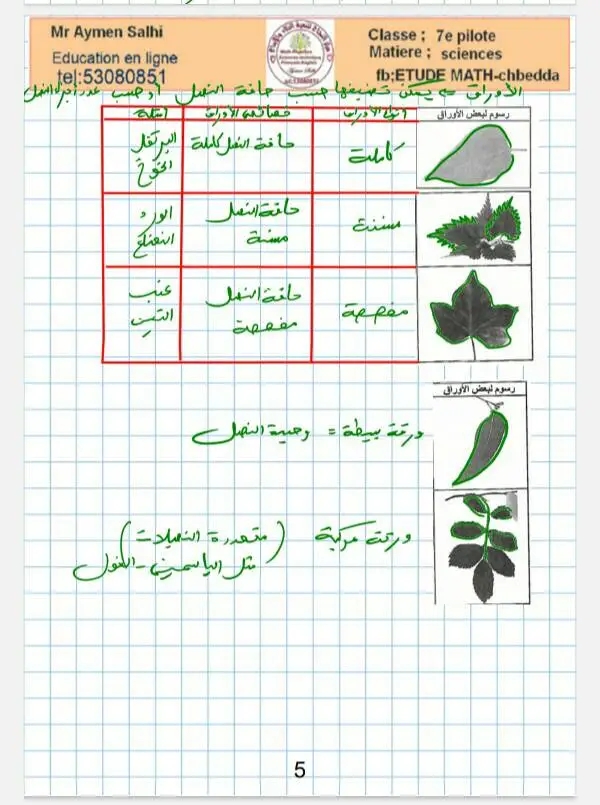 Mr Aymen Salhi
Education en ligne
tel:53080851
Classe ; 7e pilote
Matiere ; sciences
fb:ETUDE MATH-chbedda
الأوراق => يمكن تصنيفها حسب حافة النصل أو حسب عدد أجزاء النصل
رسوم لبعض الأوراق أنواع الأوراق خصائص الأوراق أمثلة
كاملة حافة النصل كاملة البرتقال
الخوخ
مسننة حافة النصل الورد
مسننة النعناع
مفصصة حافة النصل عنب
مفصصة التين
رسوم لبعض الأوراق
ورقة بسيطة = وحيدة النصل
ورقة مركبة (متعددة النصيلات)
مثل الياسمين - الفول
5